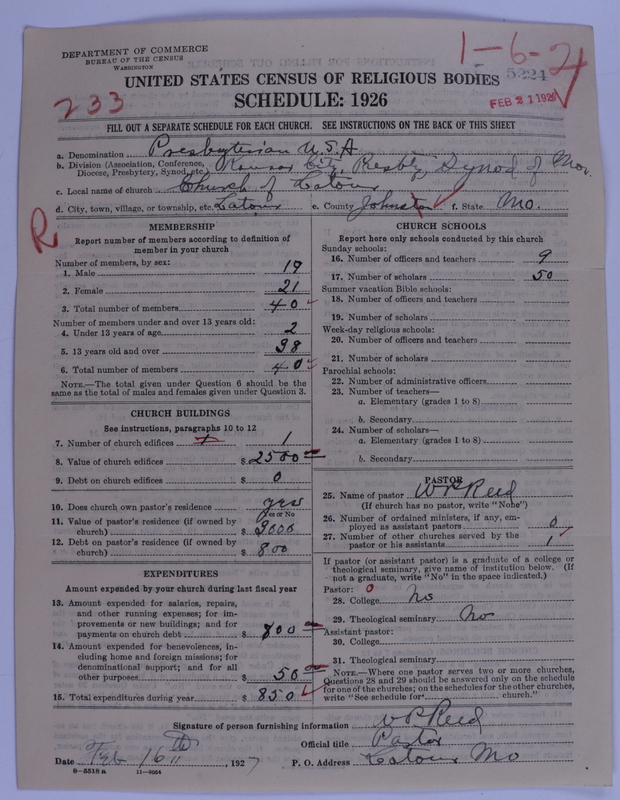 DEPARTMENT OF COMMERCE
BUREAU OF THE CENSUS
WASHINGTON
1-6-2
5224
FEB 21 192
233
UNITED STATES CENSUS OF RELIGIOUS BODIES
SCHEDULE: 1926
FILL OUT A SEPARATE SCHEDULE FOR EACH CHURCH. SEE INSTRUCTIONS ON THE BACK OF THIS SHEET
a. Denomination Presbyterian U.S.A
b. Division (Association, Conference, Diocese, Presbytery, Synod, etc.) Kansas City, Presby, Synod of Mo.
c. Local name of church Church of Latour
d. City, town, village, or township, etc. Latour e. County Johnston f. State Mo.
R
MEMBERSHIP
Report number of members according to definition of
member in your church
Number of members, by sex:
1. Male 19
2. Female 21
3. Total number of members 40
Number of members under and over 13 years old:
4. Under 13 years of age 2
5. 13 years old and over 38
6. Total number of members 40
NOTE.—The total given under Question 6 should be the
same as the total of males and females given under Question 3.
CHURCH BUILDINGS
See instructions, paragraphs 10 to 12
7. Number of church edifices 1
8. Value of church edifices $ 2500
9. Debt on church edifices $ 0
10. Does church own pastor's residence yes
Yes or No
11. Value of pastor's residence (if owned by
church) $ 3000
12. Debt on pastor's residence (if owned by
church) $ 800
EXPENDITURES
Amount expended by your church during last fiscal year
13. Amount expended for salaries, repairs,
and other running expenses; for im-
provements or new buildings; and for
payments on church debt $ 800
14. Amount expended for benevolences, in-
cluding home and foreign missions; for
denominational support; and for all
other purposes $ 50
15. Total expenditures during year $ 850
CHURCH SCHOOLS
Report here only schools conducted by this church
Sunday schools:
16. Number of officers and teachers 9
17. Number of scholars 50
Summer vacation Bible schools:
18. Number of officers and teachers
19. Number of scholars
Week-day religious schools:
20. Number of officers and teachers
21. Number of scholars
Parochial schools:
22. Number of administrative officers
23. Number of teachers—
a. Elementary (grades 1 to 8)
b. Secondary
24. Number of scholars—
a. Elementary (grades 1 to 8)
b. Secondary
PASTOR
25. Name of pastor W P Reed
(If church has no pastor, write "None")
26. Number of ordained ministers, if any, em-
ployed as assistant pastors 0
27. Number of other churches served by the
pastor or his assistants 1
If pastor (or assistant pastor) is a graduate of a college or
theological seminary, give name of institution below. (If
not a graduate, write "No" in the space indicated.)
Pastor: 0
28. College No
29. Theological seminary No
Assistant pastor:
30. College
31. Theological seminary
NOTE.—Where one pastor serves two or more churches,
Questions 28 and 29 should be answered only on the schedule
for one of the churches; on the schedules for the other churches,
write "See schedule for church."
Signature of person furnishing information W P Reed
Official title Pastor
Date Feb 16th, 1927 P. O. Address Latour Mo
8-5518 a 11-9054